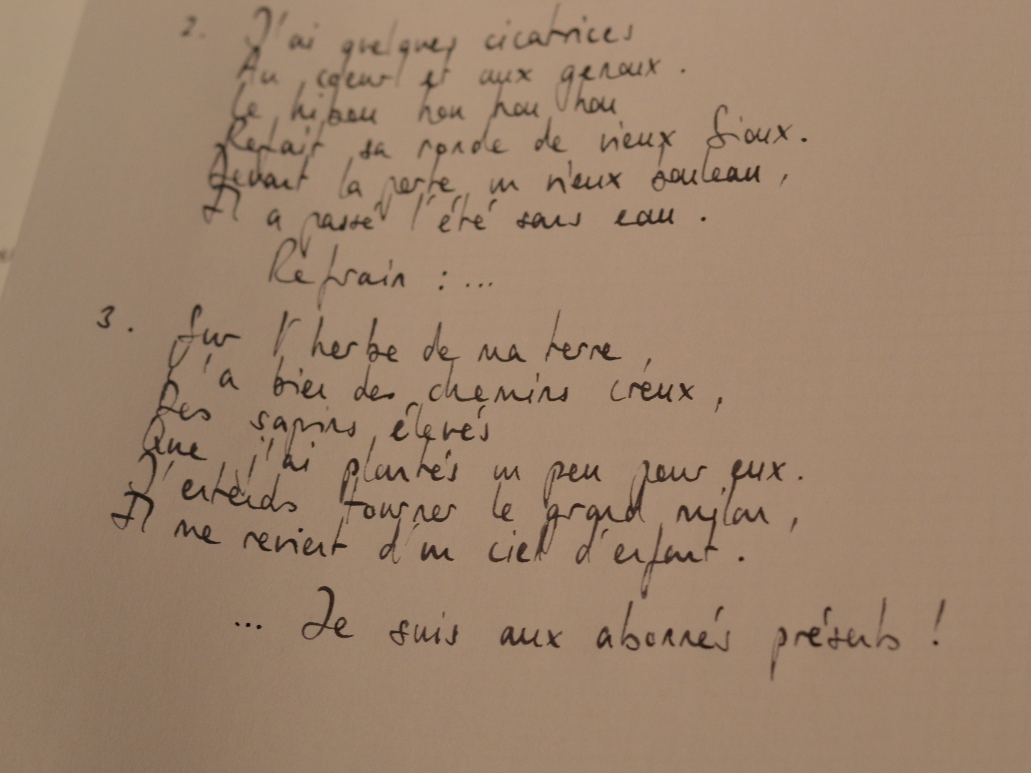 2. J'ai quelques cicatrices
Au coeur et aux genoux.
Le hibou hou hou hou
Refait sa ronde de vieux Sioux.
Devant la porte, un vieux bouleau,
Il a passé l'été sans eau.
Refrain : ...
3. Sur l'herbe de ma terre,
J'a bien des chemins creux,
Des sapins élevés
Que j'ai plantés un peu pour eux.
J'entends tourner le grand milan,
Il me revient d'un ciel d'enfant.
... Je suis aux abonnés présents !